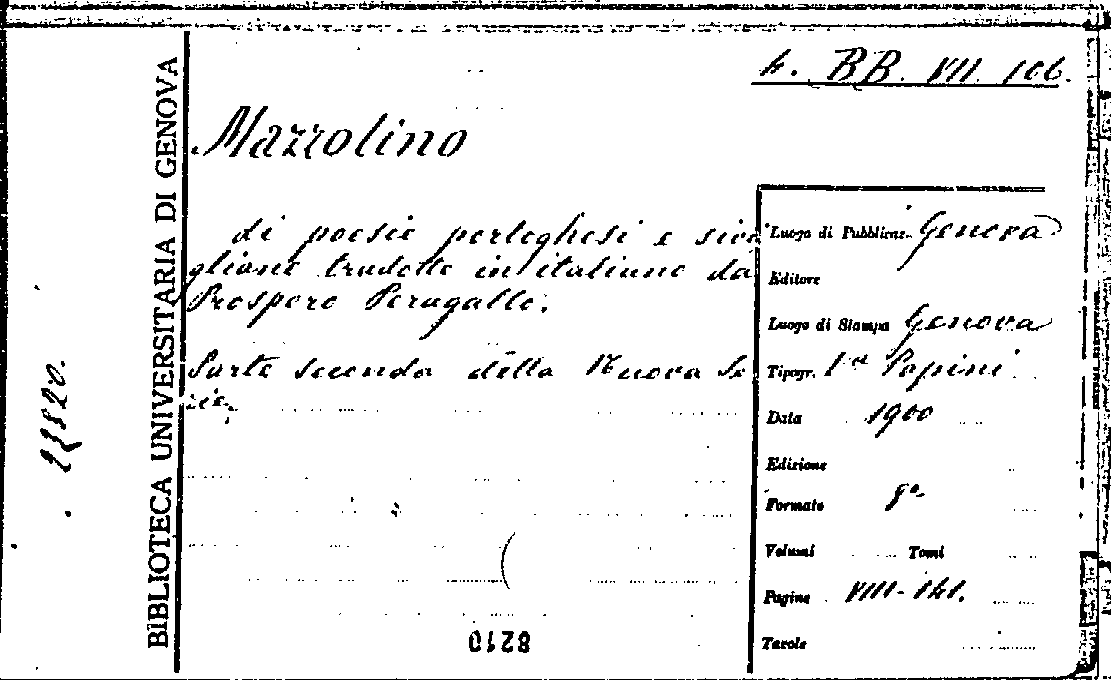 4. BB. VII. 106.
BIBLIOTECA UNIVERSITARIA DI GENOVA
Mazzolino
di poesie porteghesi e sivi
gliane tradotte in italiano da
Prospero Peragallo.
Parte seconda della Nuova Se
rie.
Luogo di Pubblicaz. Genova
Editore
Luogo di Stampa Genova
Tipogr. Papini
Data 1900
Edizione
Formato 8º
Volumi Tomi
Pagine VIII-141.
Tavole
8210